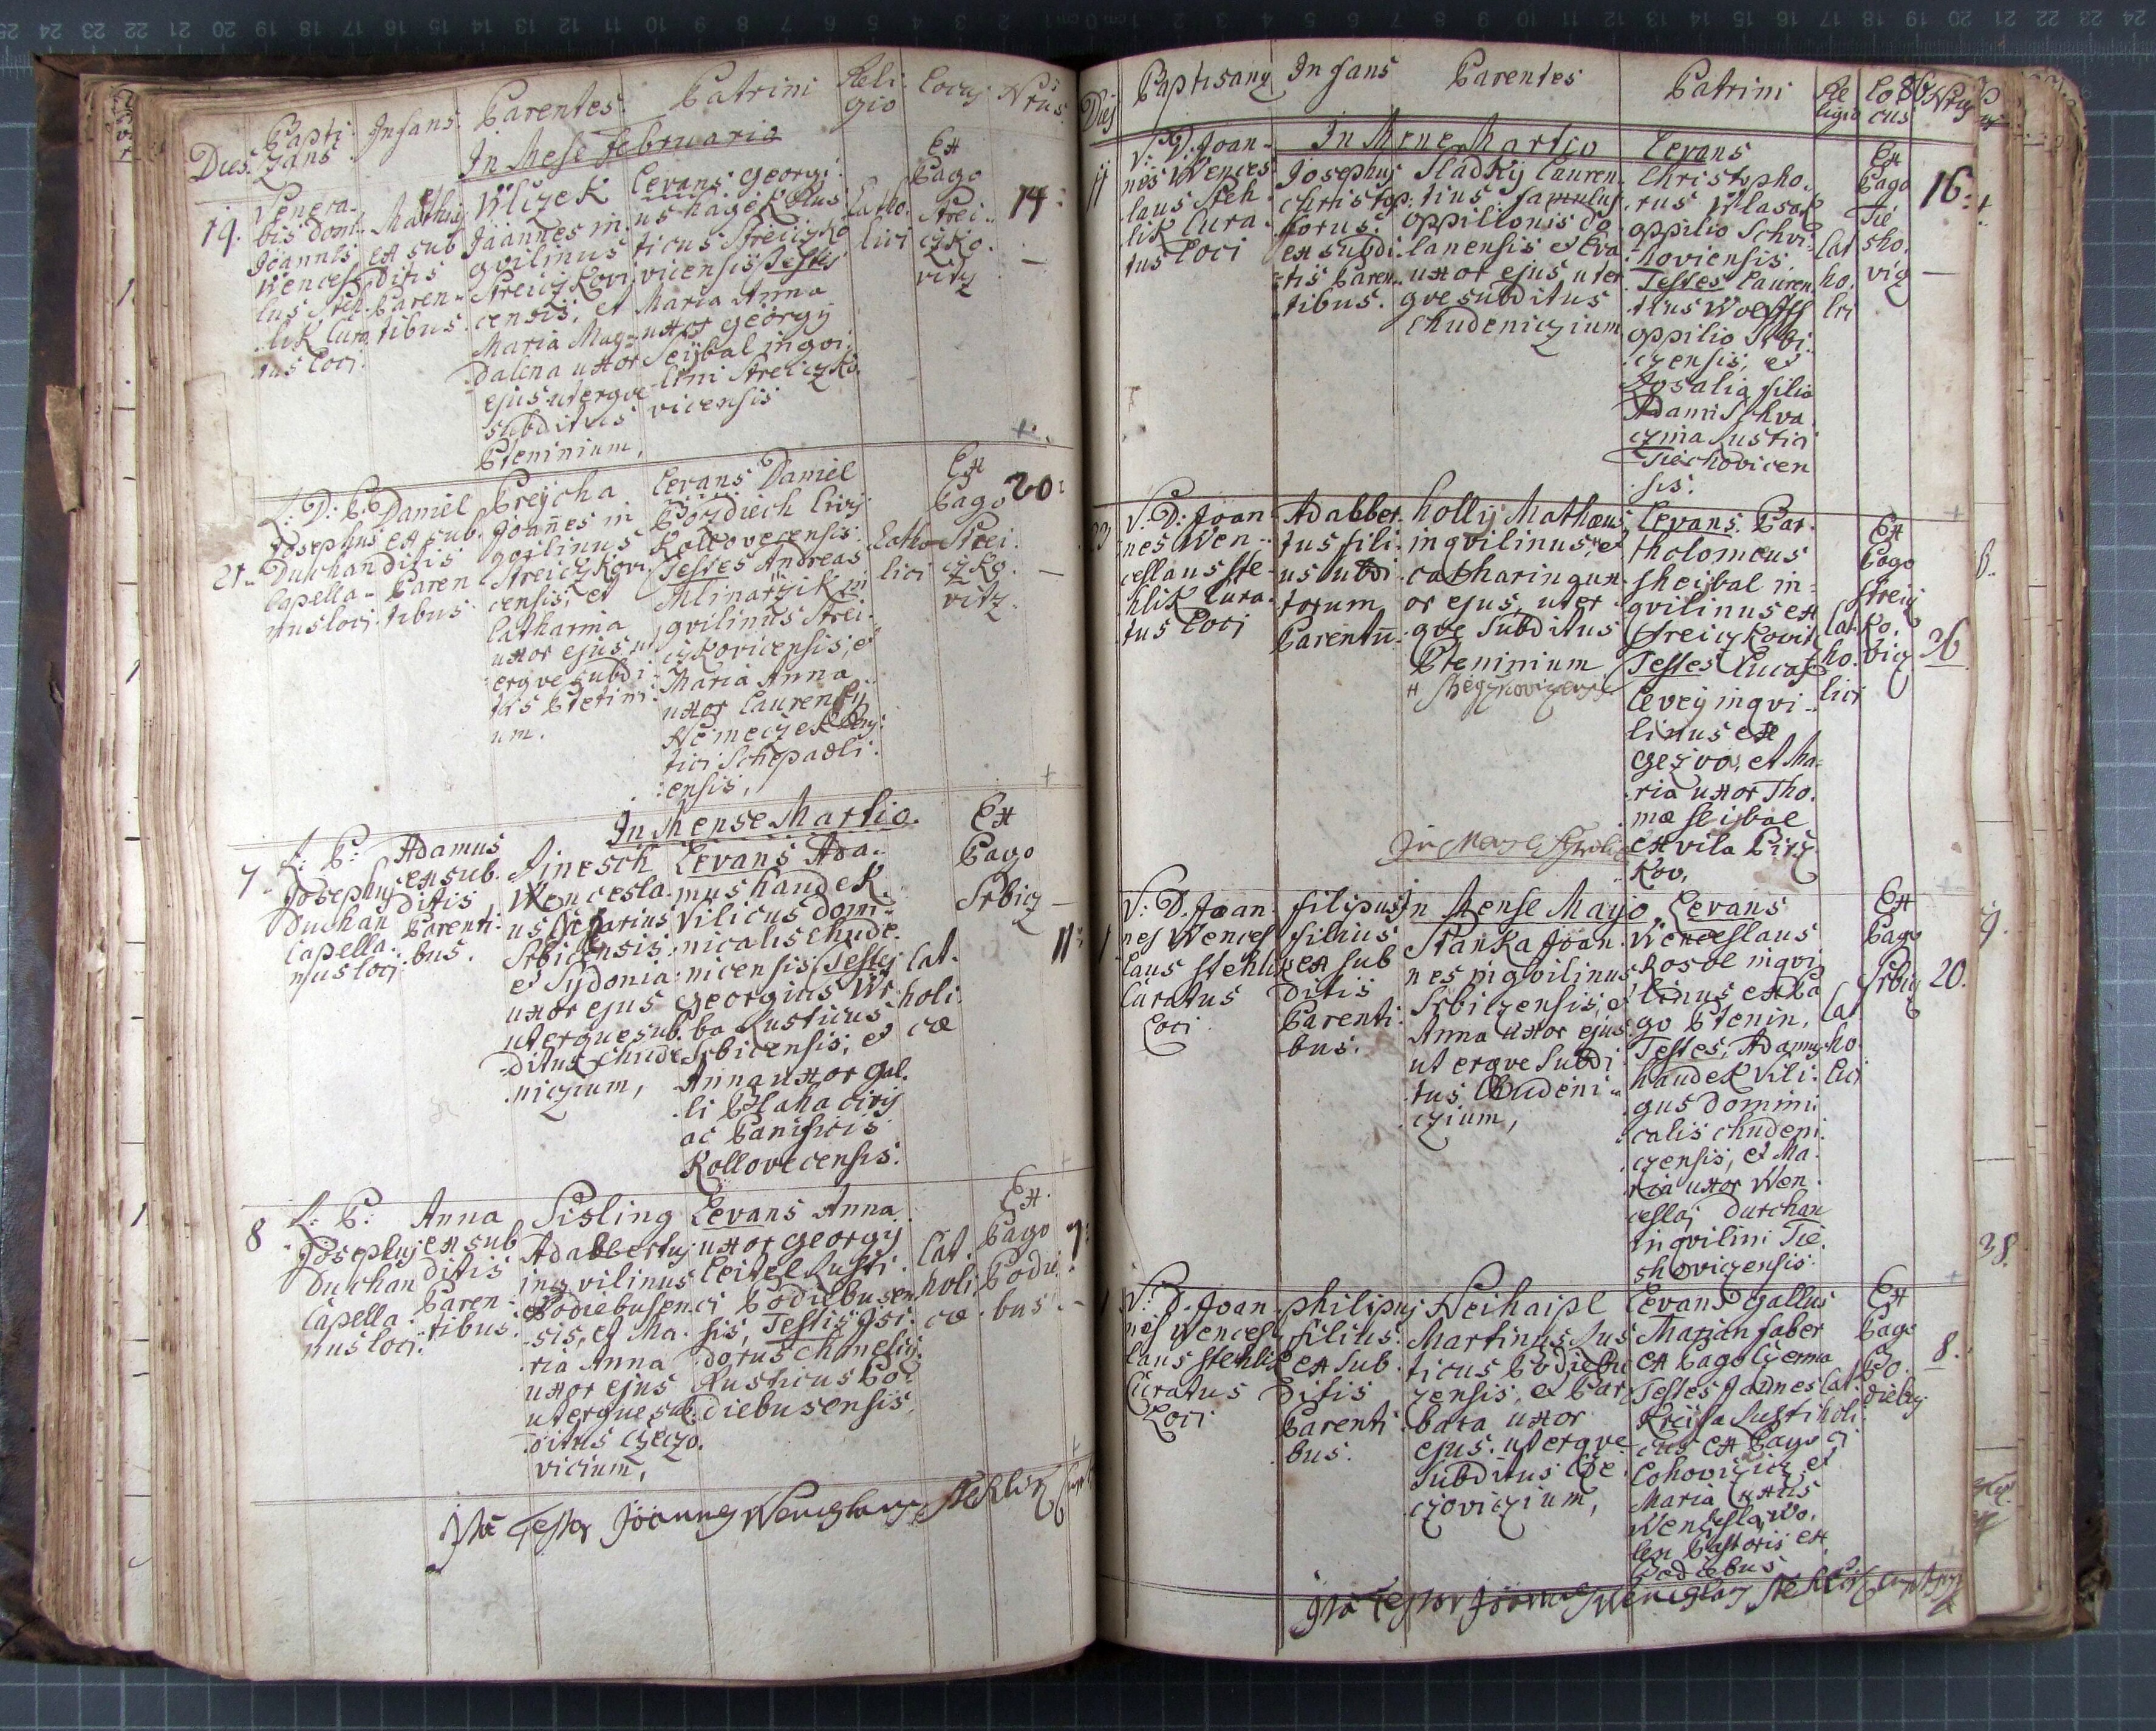 Dies. Baptizans Infans. Parentes. Patrini Religio Locus Nrus.
In Mese februario
19.
Venera-
bis Dom.
Joannes
Wences
lus Steh-
lik Cura
tus Loci.
Mathias
ex sub
ditis
Paren-
tibus.
Wlizek
Joannes in
gvilinus
Streiczkovi
censis, et
Maria Mag-
dalena uxor
ejus uterque
subditus
Pteninium,
Levans Georgi
us hagek Rus
ticus Streiczko
vicensis Testes
Maria Anna
uxor georgy
Seijbal ingvi
lini Streiczko
vicensis
Catho
lici
Ex
Pago
Strei
czko.
vitz
14:
21.
L: D: P.
Josephus
Duchan
Capella-
nus loci.
Daniel
ex sub.
ditis
Paren
tibus
Preijcha
Joannes in
gvilinus
Streiczkovi
censis, et
Catharina
uxor ejus ut
erqve subdi
tus Ptenini
um.
Levans Daniel
Pozdiech Civij
Kollovecensis.
Testes Andreas
Mlinarzik in
gvilinus Strei
czkovicensis, et
Maria Anna
uxor Laurenty
Nemeczek Rus
tici Schepadli
ensis,
Catho
lici
Ex
Pago
Strei.
czko.
vitz.
20:
In Mense Martio.
7.
L: P:
Josephus
Duchan
Capella.
nus loci
Adamus
ex sub.
ditis
Parenti.
bus.
Jinesch
Wencesla.
us
Srbicensis
et Sydonia
uxor ejus
uterque sub.
ditus Chude
niczium,
Levans Ada-
mus handek
Vilicus domi-
nicalis chude.
nicensis, Testes
Georgius Wr
ba Rusticus
Srbicensis, et
Anna uxor gal.
li Blaha civij
ac Panificis
Kollovecensis.
Cat.
holi
cæ
Ex
Pago
Srbicz
11:
8
L: P:
Josephus
Duchan
Capella.
nus loci.
Anna
ex sub
ditis
Paren.
tibus.
Sisling
Adalbertus
ingvilinus
Podiebusen
sis, et Ma.
ria Anna
uxor ejus
uterque sub.
ditus Czeczo.
vicium,
Levans Anna
uxor georgy
Leitel Rusti.
ci Podiebusen
sis, Testis Isi.
dorus Chmelicz
Rusticus Po.
diebusensis,
Cat.
holi
cæ
Ex
Pago
Podie
bus
7:
Ita Testor Joannes Wenceslaus Stehlik
Dies Baptisans Infans Parentes Patrini Religio Locus 86 Nrus
In Mense Martio
11
V: D. Joan-
nes Wences
laus Steh
lik Cura-
tus Loci
Josephus
Christop:
forus.
ex subdi
tis Paren-
tibus.
Sladky Lauren.
tius famulus
oppilionis do
lanensis et Eva
uxor ejus uter
gve subditus
Chudeniczium
Levans
Christopho.
rus Wlasak
oppilio Schvi.
hoviensis.
Testes Lauren.
tius Woelfl
oppilio Srbi.
czensis, et
Rosalia filia
Adami Schva
czina Rustici
Tieschovicen
sis.
Cat
ho.
lici
Ex
Pago
Tie
sho.
viz
16:
23
V: D. Joan
nes Wen-
ceslaus Ste-
hlik Cura-
tus Loci
Adalber.
tus fili.
us subdi
torum
Parentū
holly Mathæus
ingvilinus, et
catharina ux.
or ejus, uter
gve Subditus
Pteninium
Levans. Bar
tholomeus
Sheijbal in-
gvilinus ex
Streiczkovitz
Testes Lucas
Levey ingvi-
linus ex
gezvo, et Ma-
ria uxor Tho.
mæ sleijbal
ex vila Pirz
kov,
Cat
ho.
lici
Ex
Pago
Streicz
ko.
viz
36
In Mense Aprili
In Mense Mayo
1
V: D. Joan
nes Wences
laus Stehlik
Curatus
Loci
filipus
filius
ex sub
ditis
Parenti.
bus.
Stanka Joan.
nes ingvilinus
Srbiczensis, et
Anna uxor ejus
uterqve subdi
tus Chudeni-
czium,
Levans
Wenceslaus
Kosol ingvi
linus ex Pa
go Ptenin,
Testes, Adamus
handek Vili.
gus Domini
calis chudeni.
czensis, et Ma.
ria uxor Wen.
ceslaj Durchan
ingvilini Tie.
shovizensis.
Cat
ho
lici
Ex
Pago
Srbicz
20.
1
V: D. Joan
nes Wences
laus Stehlik
Curatus
Loci
philipus
filius
ex sub.
ditis
Parenti
bus.
Neihaipl
Martinus Rus
ticus Podiebu
zensis, et Bar
bara uxor
ejus. uterqve
subditus Cze
czoviczium,
Levans gallus
Marian faber
ex Pago Czerma
Testes Joannes
Kreisa Rusti
cus ex Pago
Lohovizicz et
Maria uxor
Wenceslai Wo.
len Pastoris ex
Podiebus
Cat
holi
ci
Ex
Pago
Po.
diebus
8.
Ita Testor Joannes Wenceslaus Stehlik Curatus